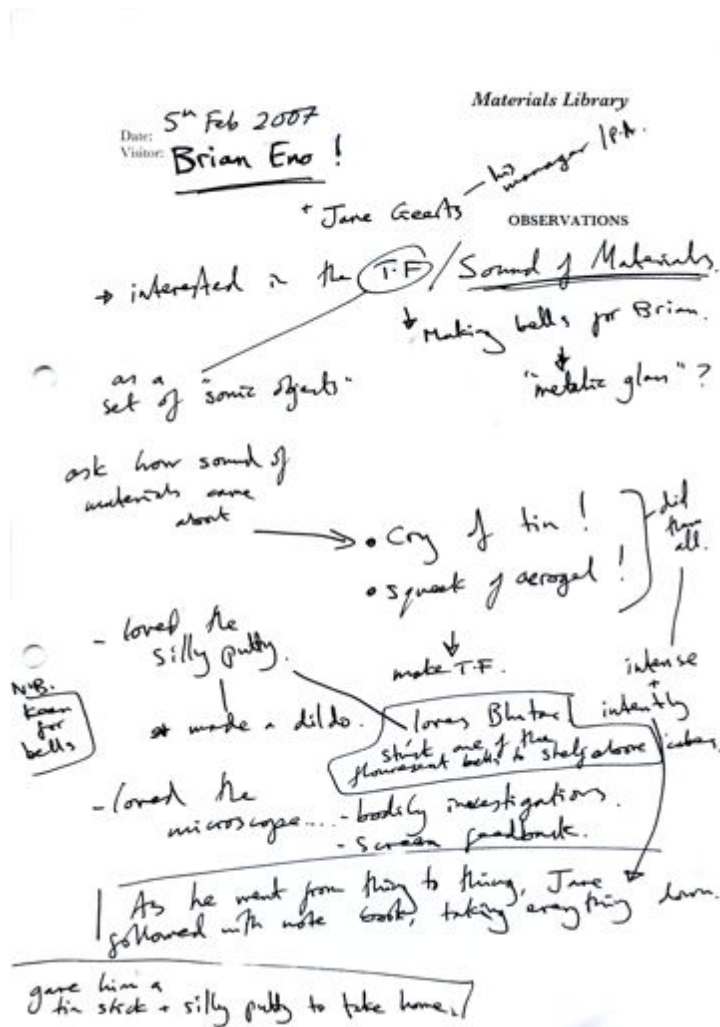 Materials Library
Date: 5th Feb 2007
Visitor: Brian Eno !
+ Jane Geerts – his manager / P.A.
OBSERVATIONS
→ interested in the T.F / Sound of Materials.
↓ Making bells for Brian.
↓
"metallic glass" ?
as a
set of "sonic objects"
ask how sound of
materials came
about →
• Cry of tin !
• squeak of aerogel !
did them all.
↓
make T.F.
intense
+
intently
- loved the
silly putty.
made a dildo.
N.B.
Keen
for
bells
loves
stuck one of the
flourescent balls to shelf above
- loved the
microscope.... - bodily investigations.
- screen feedback.
As he went from thing to thing, Jane
followed with note book, taking everything down.
gave him a
tin stick + silly putty to take home.